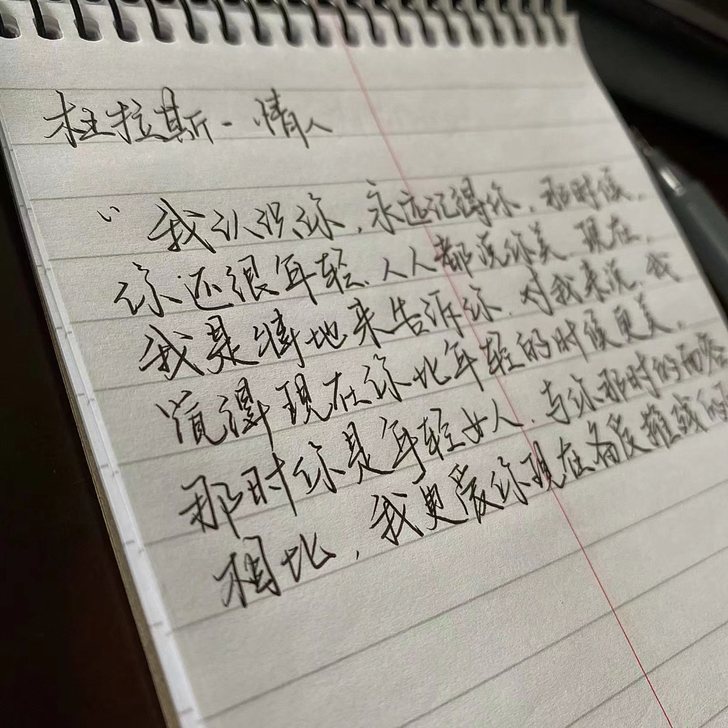 杜拉斯-情人
“我认识你，永远记得你，那时候，
你还很年轻，人人都说你美，现在，
我是特地来告诉你，对我来说，我
觉得现在你比年轻的时候更美，
那时你是年轻女人，与你那时的面貌
相比，我更爱你现在备受摧残的